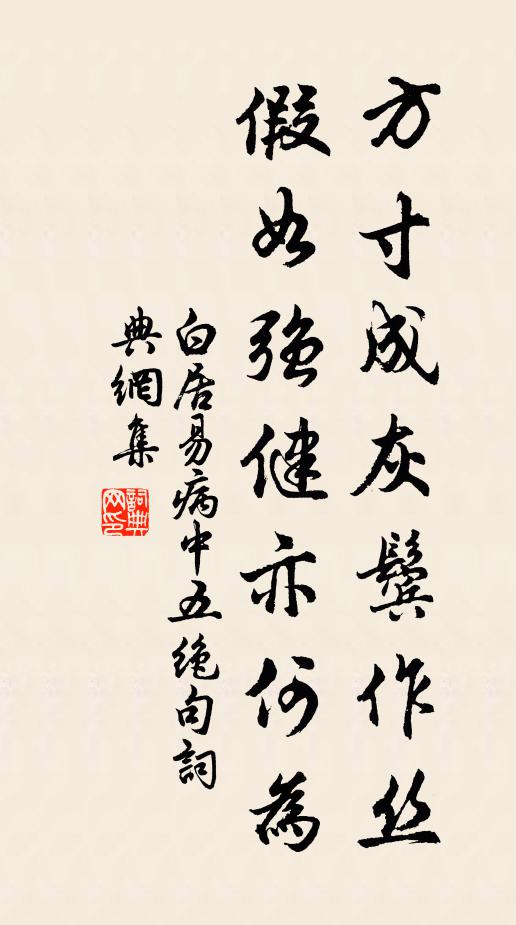 方寸成灰鬓作丝
假如強健亦何為
白居易病中五絶句詞
典網集
詞典网印